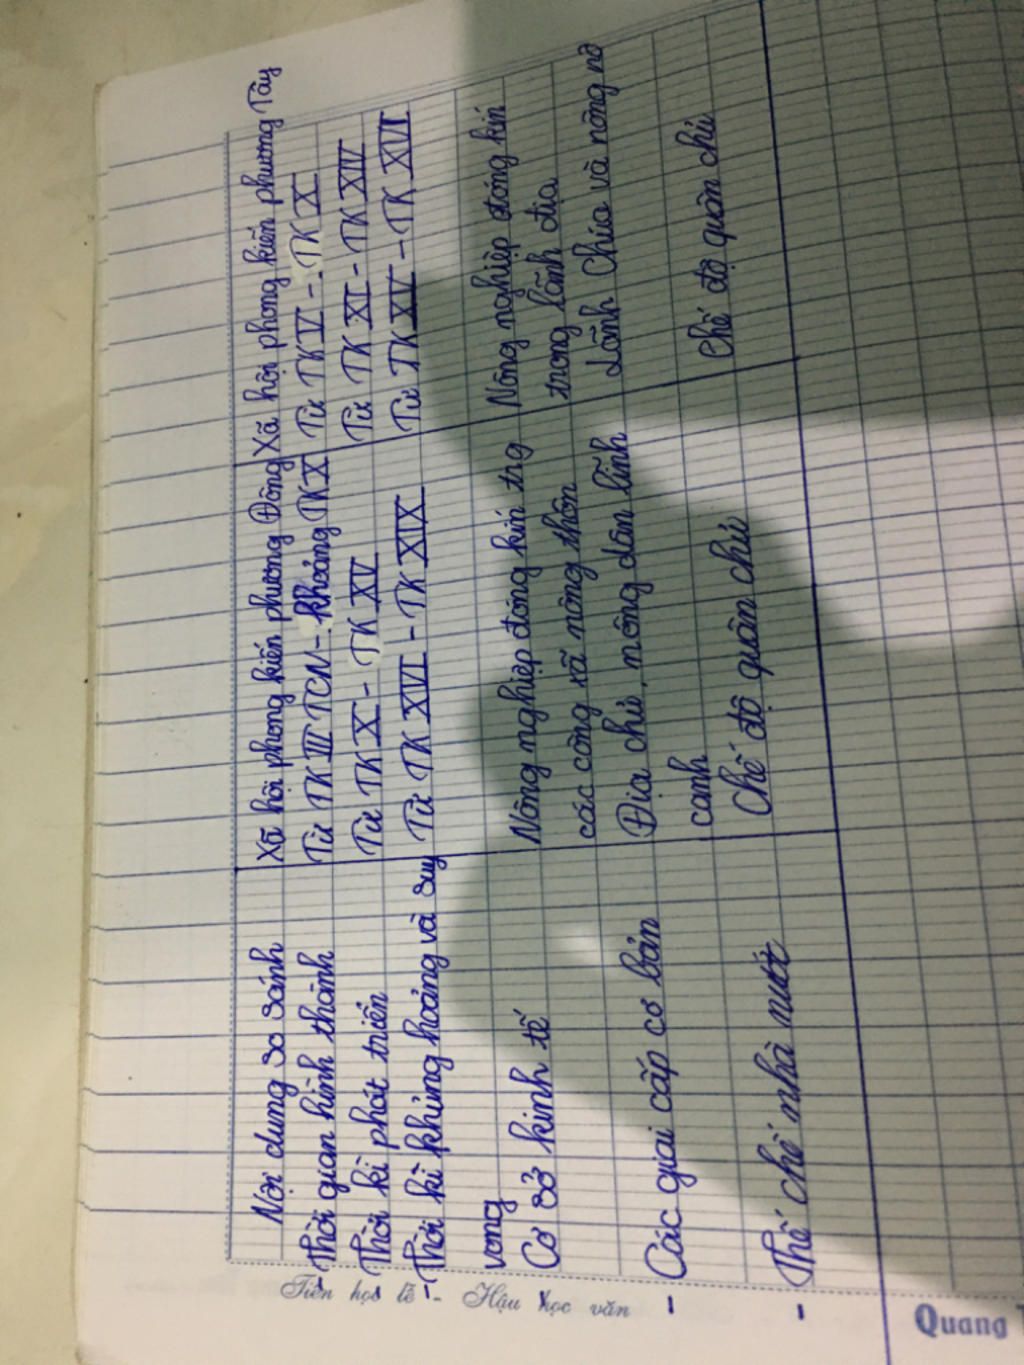 Nội dung so sánh Xã hội phong kiến phương Đông Xã hội phong kiến phương Tây
- Thời gian hình thành Từ TK III TCN - khoảng TK X Từ TK V - TK X
- Thời kì phát triển Từ TK X - TK XV Từ TK XI - TK XIV
- Thời kì khủng hoảng và suy Từ TK XVI - TK XIX Từ TK XV - TK XVI
vong
Cơ sở kinh tế Nông nghiệp đóng kín trg Nông nghiệp đóng kín
các công xã nông thôn trong lãnh địa
- Các giai cấp cơ bản Địa chủ, nông dân lĩnh Lãnh chúa và nông nô
canh
- Thế chế nhà nước Chế độ quân chủ Chế độ quân chủ
Tiên học lễ - Hậu học văn
Quang